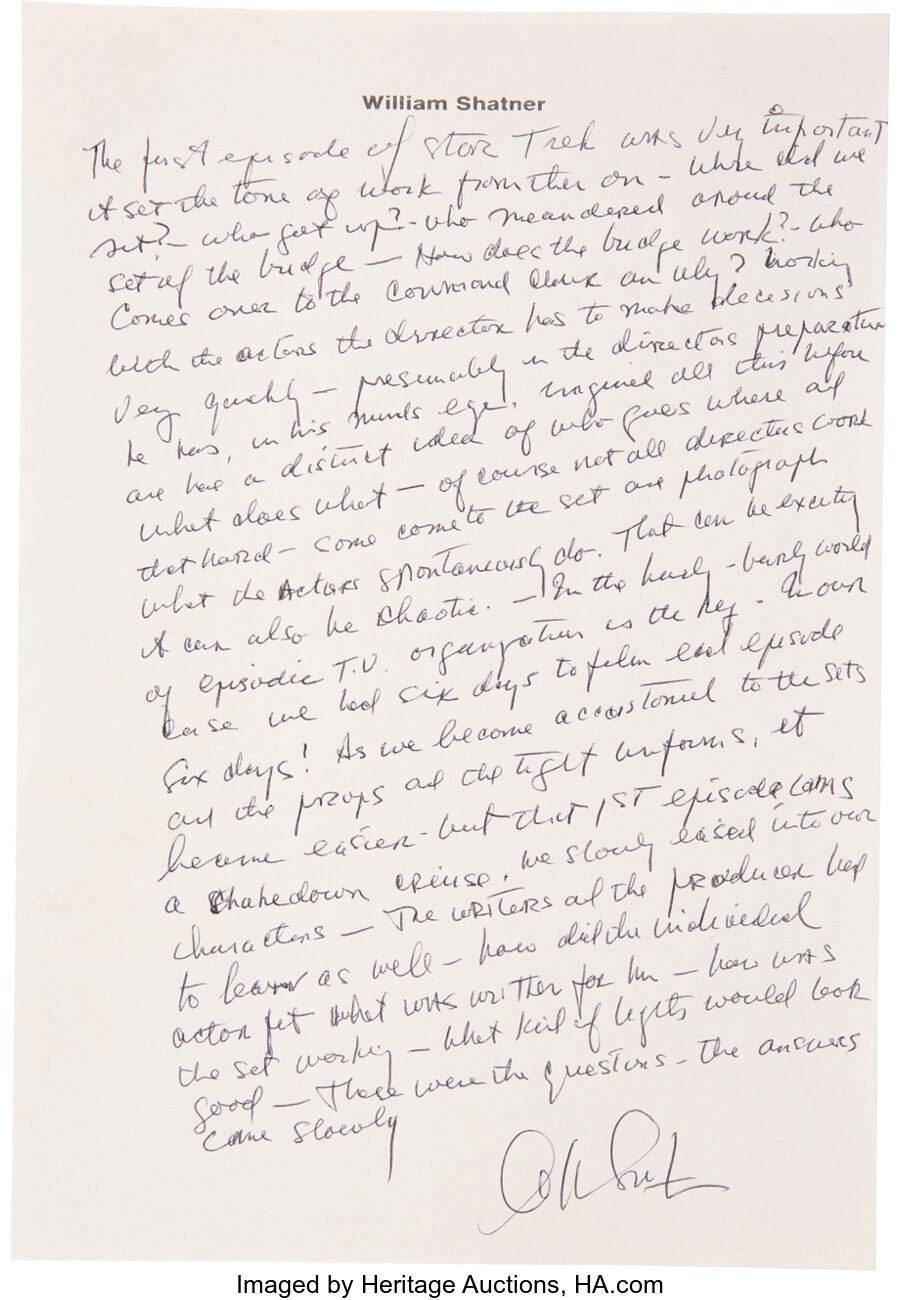 William Shatner
The first episode of Star Trek was very important
it set the tone of work from then on - where did we
sit? - who got up? - who meandered around the
set of the bridge - How does the bridge work? - who
comes over to the command chair an why? Working
with the actors the director has to make decesions
very quickly - presumably in the directors preparation
he has, in his minds eye, imagined all this before
and has a distinct idea of who goes where and
what does what - of course not all directors work
that hard - some come to the set and photograph
what the Actors spontaneously do. That can be exciting
it can also be chaotic. - In the hurly - burly world
of episodic T.V. organization is the key - In our
case we had six days to film each episode
Six days! As we become accustomed to the sets
and the props and the tight uniforms, it
became easier - but that 1ST episode was
a shakedown cruise. we slowly eased into our
characters - The writers and the producer had
to learn as well - how did the individual
actor fit what was written for him - how was
the set working - What kind of lights would look
good - These were the questions - the answers
came slowly
Imaged by Heritage Auctions, HA.com